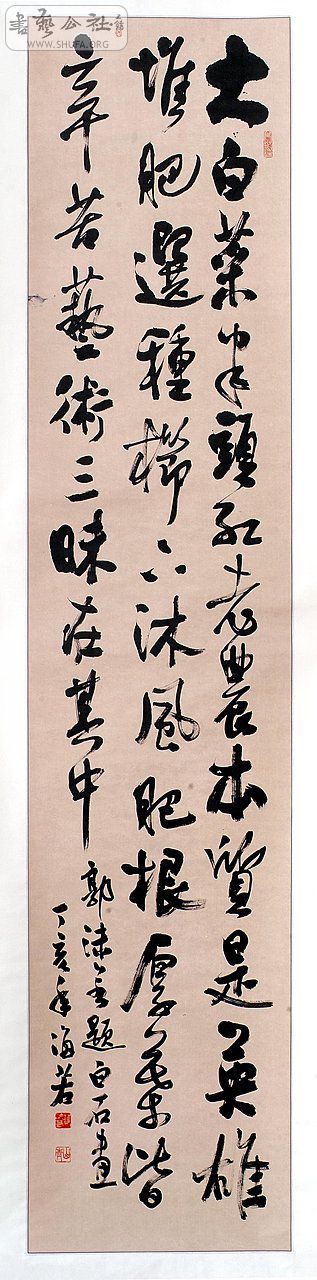 大白菜頭紅老農本質是英雄
堆肥選種櫛雨沐風肥根厚葉皆
辛苦藝術三昧在其中
郭沫若題白石畫
丁亥年海若
書藝公社
WWW.SHUFA.ORG